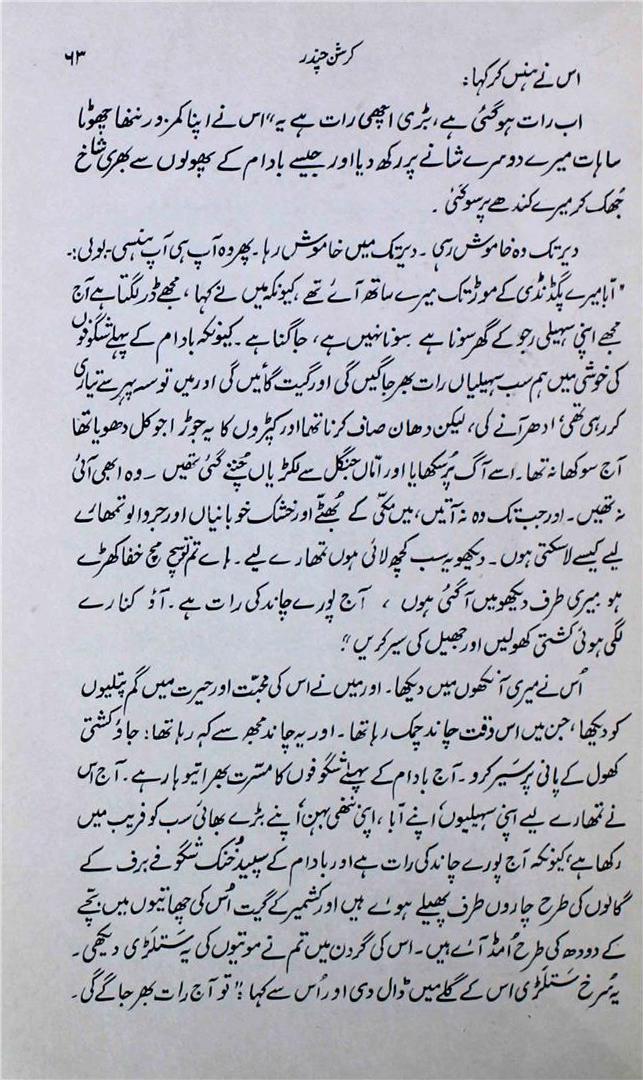 کرشن چندر ۶۳
اس نے ہنس کر کہا:
اب رات ہوگئی ہے، بڑی اچھی رات ہے یہ" اس نے اپنا کمزور ننھا چھوٹا
سا ہات میرے دوسرے شانے پر رکھ دیا اور جیسے بادام کے پھولوں سے بھری شاخ
جھک کر میرے کندھے پر سوگئی۔
دیر تک وہ خاموش رہی۔ دیر تک میں خاموش رہا۔ پھر وہ آپ ہی آپ ہنسی۔ بولی:۔
"ابا میرے پگڈنڈی کے موڑ تک میرے ساتھ آئے تھے، کیونکہ میں نے کہا، مجھے ڈر لگتا ہے آج
مجھے اپنی سہیلی رجو کے گھر سونا ہے سونا نہیں ہے، جاگنا ہے۔ کیونکہ بادام کے پہلے شگوفوں
کی خوشی میں ہم سب سہیلیاں رات بھر جاگیں گی اور گیت گائیں گی اور میں تو سہ پہر سے تیاری
کر رہی تھی، ادھر آنے کی، لیکن دھان صاف کرنا تھا اور کپڑوں کا یہ جوڑا جو کل دھویا تھا
آج سوکھا نہ تھا۔ اسے آگ پر سکھایا اور اماں جنگل سے لکڑیاں چننے گئی تھیں۔ وہ ابھی آئی
نہ تھیں۔ اور جب تک وہ نہ آتیں، میں مکی کے بھٹے اور خشک خوبانیاں اور جردالو تمھارے
لیے کیسے لاسکتی ہوں۔ دیکھو یہ سب کچھ لائی ہوں تمھارے لیے۔ ہائے تم تو سچ مچ خفا کھڑے
ہو میری طرف دیکھو میں آگئی ہوں، آج پورے چاند کی رات ہے۔ آؤ کنارے
لگی ہوئی کشتی کھولیں اور جھیل کی سیر کریں"۔
اُس نے میری آنکھوں میں دیکھا۔ اور میں نے اس کی محبّت اور حیرت میں گم پتلیوں
کو دیکھا، جن میں اس وقت چاند چمک رہا تھا۔ اور یہ چاند مجھ سے کہہ رہا تھا: جاؤ کشتی
کھول کے پانی پر سیر کرو۔ آج بادام کے پہلے شگوفوں کا مسرّت بھرا تیوہار ہے۔ آج اس
نے تمھارے لیے اپنی سہیلیوں، اپنے ابا، اپنی ننھی بہن، اپنے بڑے بھائی سب کو فریب میں
رکھا ہے، کیونکہ آج پورے چاند کی رات ہے اور بادام کے سپید خنک شگوفے برف کے
گالوں کی طرح چاروں طرف پھیلے ہوئے ہیں اور کشمیر کے گیت اُس کی چھاتیوں میں بچّے
کے دودھ کی طرح اُمڈ آئے ہیں۔ اس کی گردن میں تم نے موتیوں کی یہ ستلڑی دیکھی۔
یہ سُرخ ستلڑی اس کے گلے میں ڈال دی اور اُس سے کہا: "تو آج رات بھر جاگے گی۔